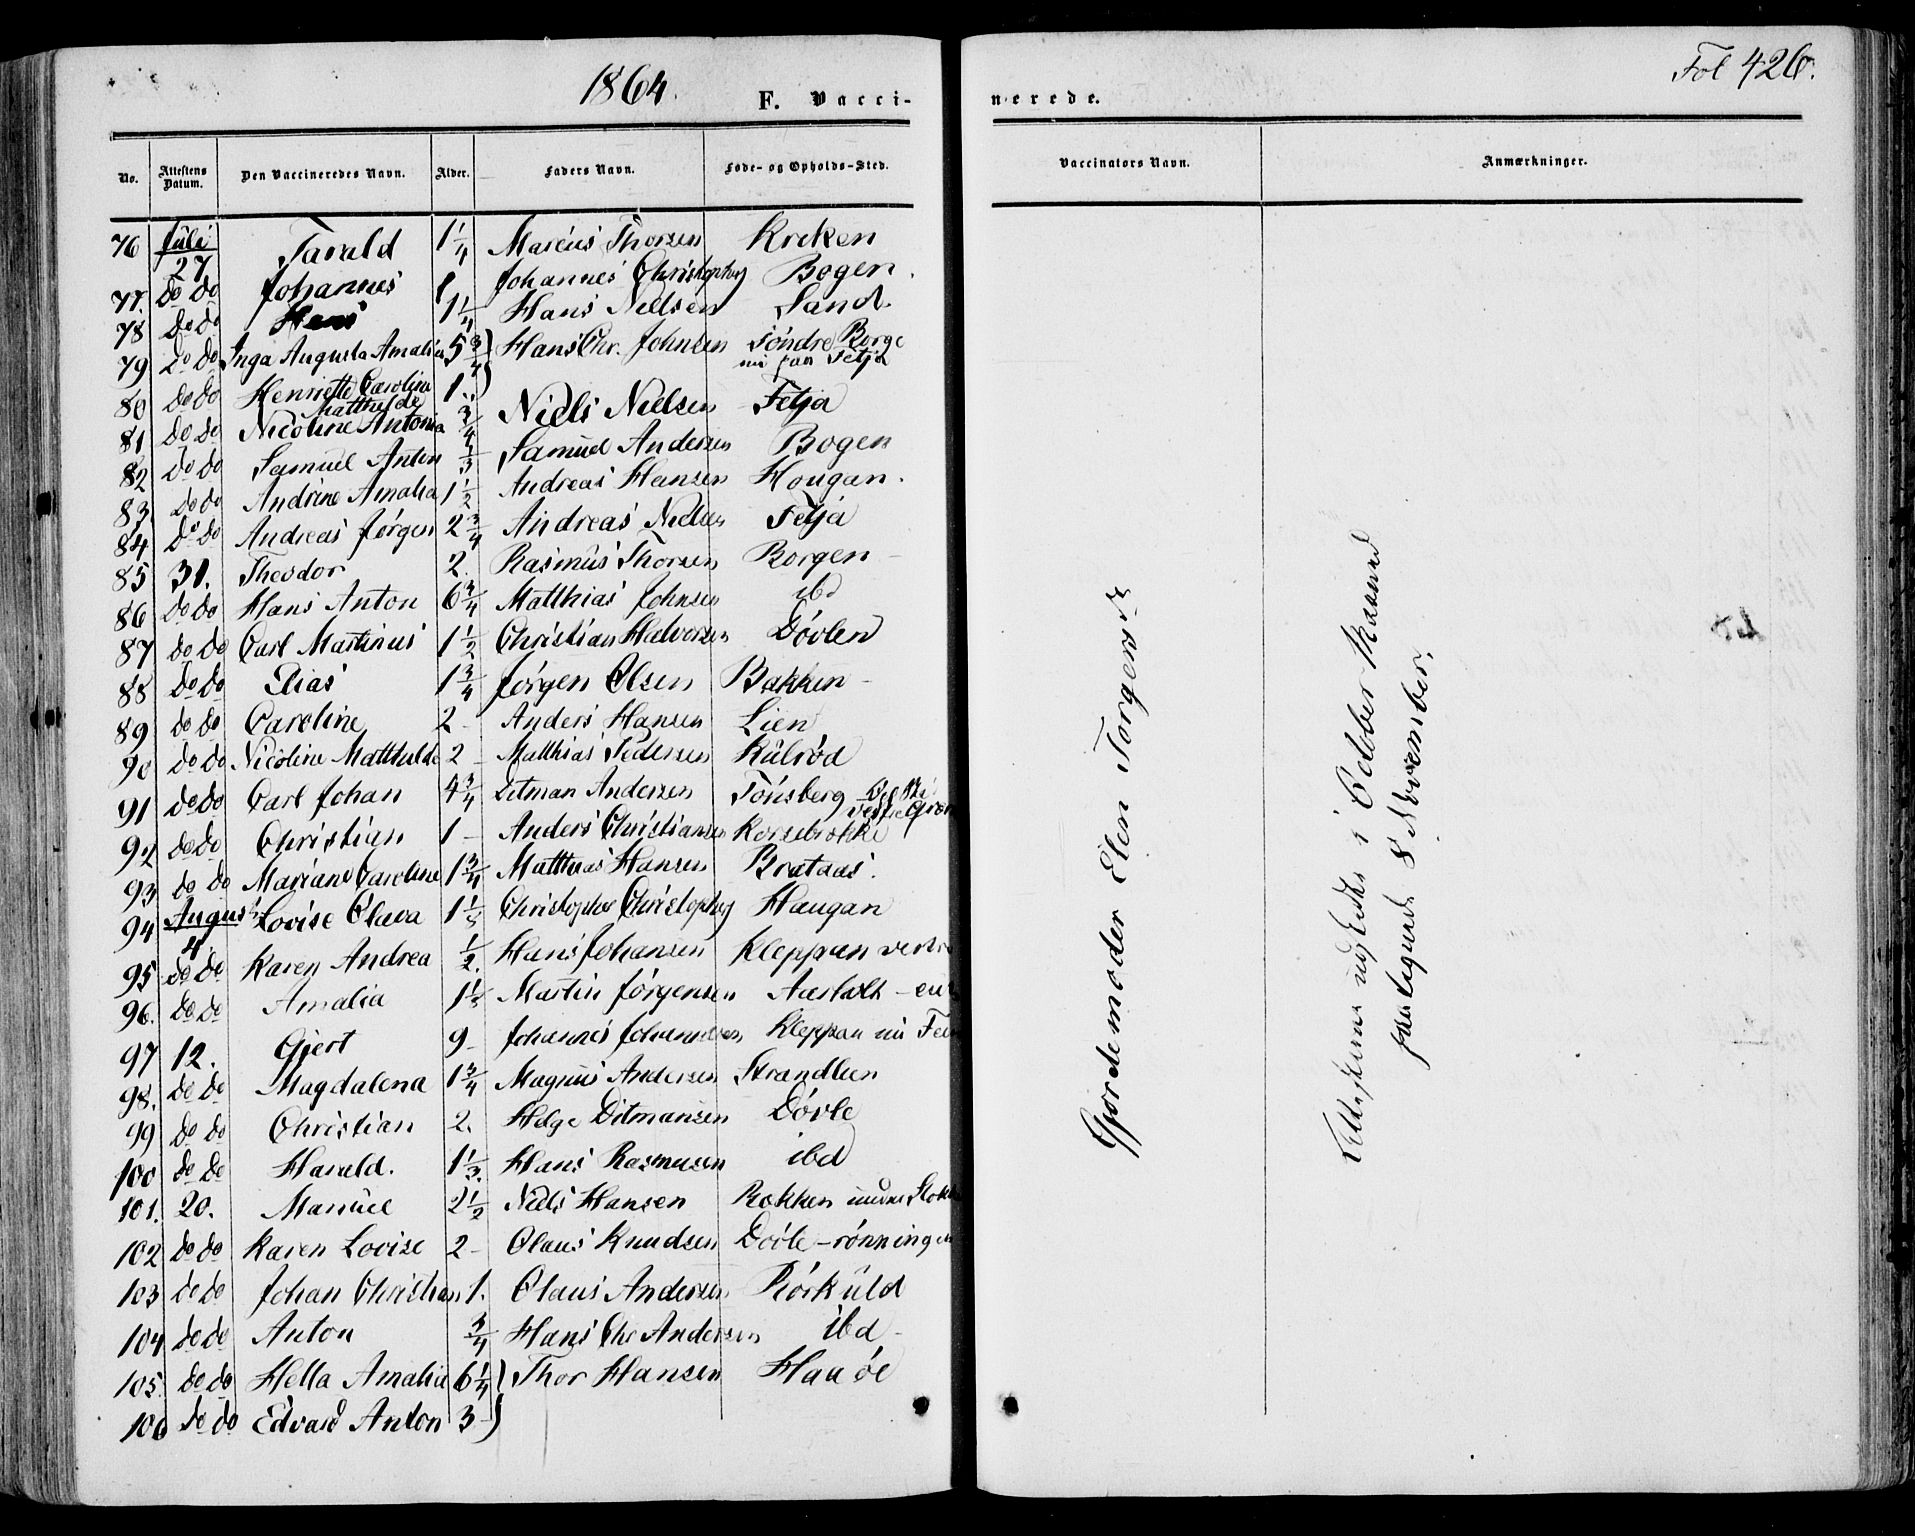 1864.
F. Vacci-
No. Attestens Datum. Den Vaccineredes Navn. Alder. Faders Navn. Føde- og Opholds-Sted.
76 Juli 27 Tarald 1 1/4 Marcus Thorsen Kreken
77. do do Johannes 1 Johannes Christophs Bogen.
78 do do Hans 1 1/4 Hans Nielsen Sand.
79 do do Inga Augusta Amalia 5 3/4 ) Hans Chr. Johnsen Søndre Borge
nu paa Fetja
80 do do Henriette Caroline 1. )
Matthilde
81 do do Nicoline Antonia 3/4 Niels Nielsen Fetja
82 do do Samuel Anton 1/3 Samuel Andersen Bogen
83 do do Andrine Amalia 1 1/2 Andreas Hansen Hougan.
84 do do Andreas Jørgen 2 3/4 Andreas Nielsen Fetja
85 31. Theodor 2. Rasmus Thorsen Borgen
86 do do Hans Anton 6 3/4 Matthias Johnsen ibd
87 do do Carl Martinus 1 1/2 Christian Halvorsen Døvlen
88 do do Elias 1 3/4 Jørgen Olsen Bakken
89 do do Caroline 2 - Anders Hansen Lien
90 do do Nicoline Matthilde 2 - Matthias Pedersen Kulrød
91 do do Carl Johan 4 3/4 Ditman Andersen Tønsberg
92 do do Christian 1 - Anders Christiansen Korsebrekke
93 do do Mariane Caroline 1 3/4 Matthias Hansen Brataas.
94 August 4. Lovise Olava 1 1/3 Christopher Christophs Haugan
95 do do Karen Andrea 1/2. Hans Johansen Kleppan
96. do do Amalia 1 1/3 Martin Jørgensen Aasholt
97 12. Gjert 9 - Johannes Johannesen Kleppan nu
98. do do Magdalena 1 3/4 Magnus Andersen Strandlien
99 do do Christian 2. Helge Ditmansen Døvle
100 do do Harald. 1 1/3. Hans Rasmusen ibd
101. 20. Manuel 2 1/2 Niels Hansen Bakken
102 do do Karen Lovise 2 - Olaus Knudsen Døvle-rønningen
103 do do Johan Christian 1. Olaus Andersen Rørkuld
104 do do Anton 3/4 Hans Chr Andersen ibd -
105. do do Hella Amalia 6 1/4 ) Thor Hansen Haaøe
106 do do Edvard Anton 3 - )
Fol 426.
nerede.
Vaccinators Navn. Anmærkninger.
Gjordemoder Elen Torgersd
Attesterne udstedte i October Maaned
8 November.